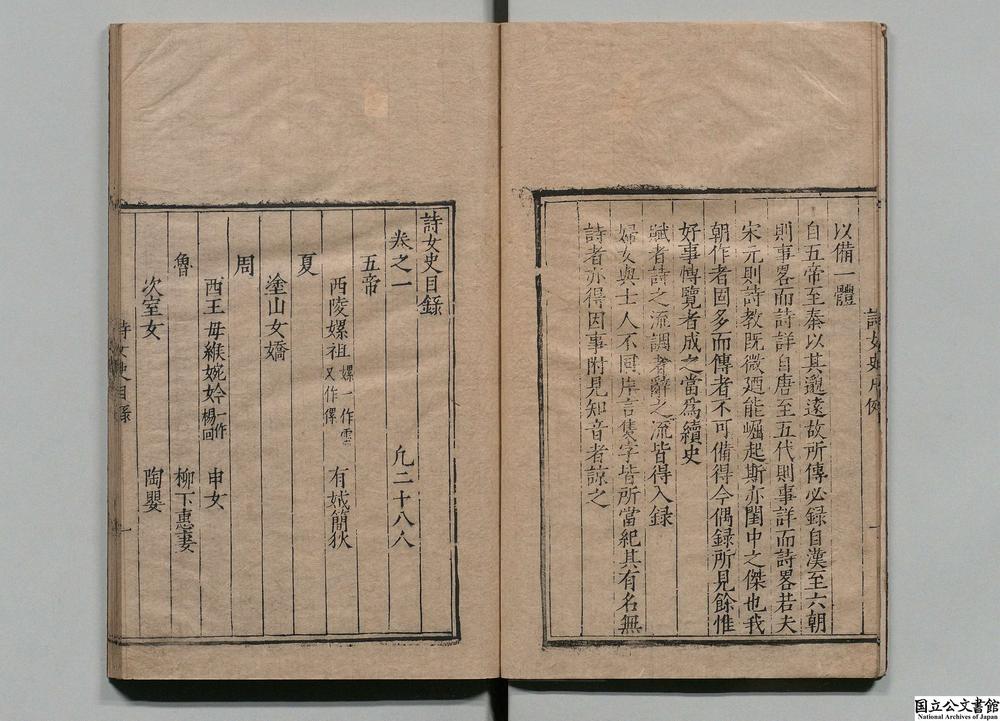 以備一體
自五帝至秦以其邈遠故所傳必録自漢至六朝
則事畧而詩詳自唐至五代則事詳而詩畧若夫
宋元則詩教既微廼能崛起斯亦閨中之傑也我
朝作者固多而傳者不可備得今偶録所見餘惟
好事博覽者成之當爲續史
賦者詩之流調者辭之流皆得入録
婦女與士人不同片言隻字皆所當紀其有名無
詩者亦得因事附見知音者諒之
詩女史凡例
一
詩女史目録
卷之一 凡二十八人
五帝
西陵嫘祖 嫘一作雲又作傫 有娀簡狄
夏
塗山女嬌
周
西王母緱婉妗 一作楊回 申女
魯 柳下惠妻
次室女 陶嬰
詩女史目録
一
国立公文書館
National Archives of Japan